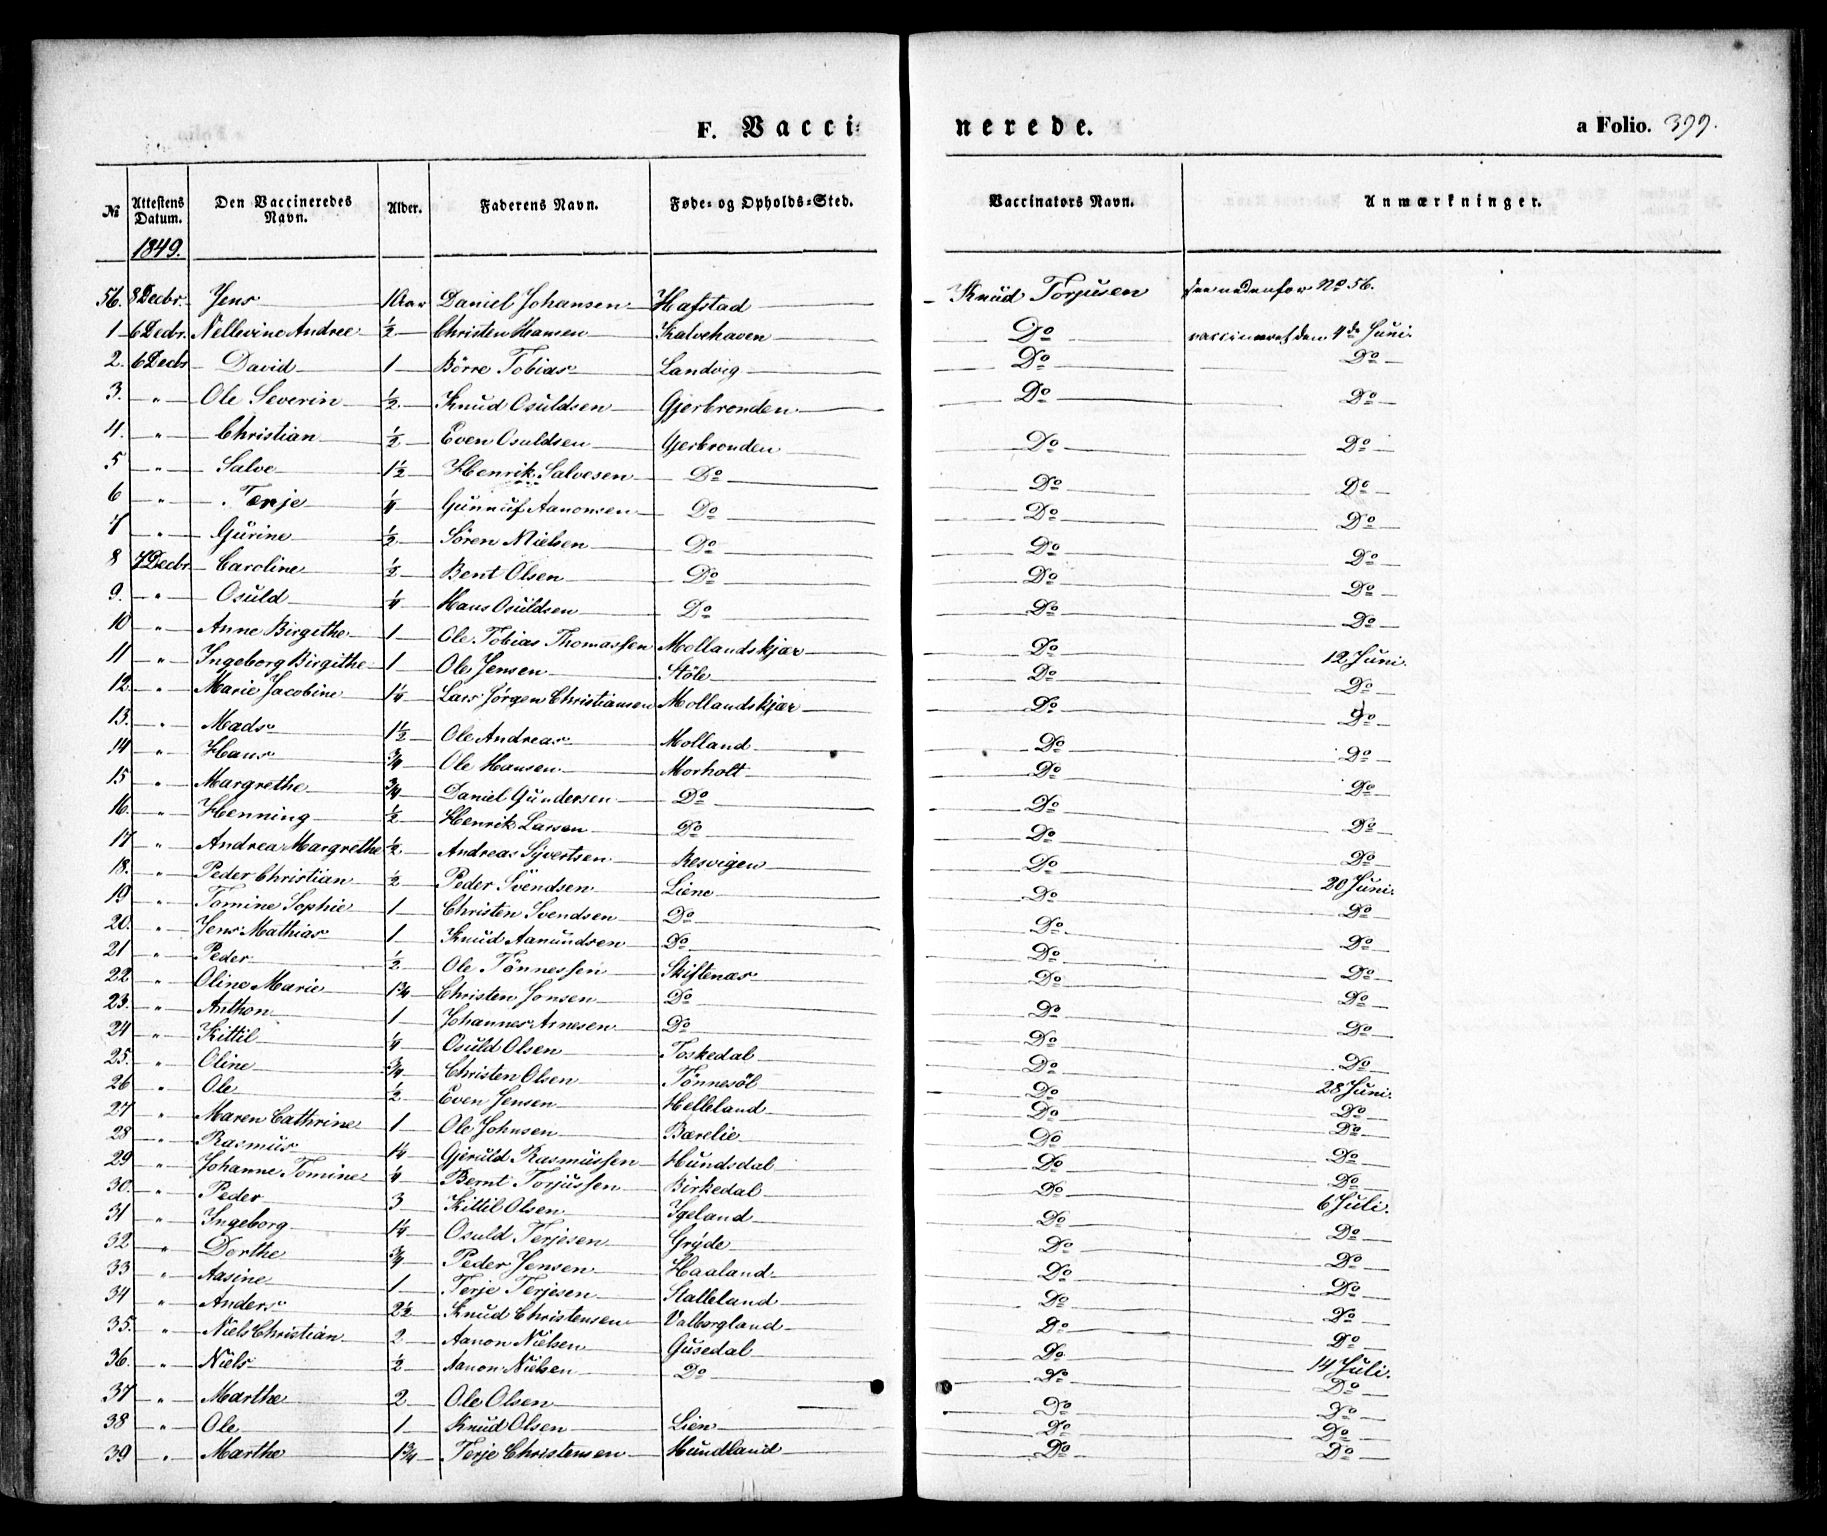 F. Vacci: nerede. a Folio. 399.
№ Attestens Datum. Den Vaccineredes Navn. Alder. Faderens Navn. Føde- og Opholds-Sted. Vaccinators Navn. Anmærkninger.
1849.
56. 8 Decbr. Jens 10 aar Daniel Johansen Hafstad Knud Torjusen see nedenfor No 56.
1 6 Decbr. Nellevine Andree ½ Christen Hansen Kalvehaven Do vaccineret den 4de Juni.
2. 6 Decbr David 1 Börre Tobias Landvig Do Do
3. " Ole Severin ½ Knud Osuldsen Gjerbronden Do Do
4. " Christian ½ Even Osuldsen Gjerbronden Do Do
5 " Salve 1½ Henrik Salvesen Do Do Do
6 " Terje ¼ Gunnuf Aanonsen Do Do Do
7 " Gurine ½ Sören Nielsen Do Do Do
8 7 Decbr Caroline ½ Bent Olsen Do Do Do
9. " Osuld ¼ Hans Osuldsen Do Do Do
10 " Anne Birgithe 1 Ole Tobias Thomassen Mollandskjær Do 12 Juni.
11 " Ingeborg Birgithe 1 Ole Jensen Stöle Do Do
12. " Marie Jacobine 1¼ Lars Jörgen Christiansen Mollandskjær Do Do
13. " Mads 1½ Ole Andreas Molland Do Do
14 " Hans ¾ Ole Hansen Morholt Do Do
15 " Margrethe ¾ Daniel Gundersen Do Do Do
16. " Henning ½ Henrik Larsen Do Do Do
17 " Andrea Margrethe ½ Andreas Syvertsen Resvigen Do 20 Juni.
18. " Peder Christian ½ Peder Svendsen Liene Do Do
19 " Tomine Sophie 1 Christen Svendsen Do Do Do
20. " Jens Mathias 1 Knud Aanundsen Do Do Do
21 " Peder ½ Ole Tönnessen Skiftenæs Do Do
22 " Oline Marie 1¾ Christen Jonsen Do Do Do
23. " Anthon 1 Johannes Arnesen Do Do Do
24 " Kittil ¼ Osuld Olsen Toskedal Do Do
25. " Oline ¾ Christen Olsen Tönnesöl Do 28 Juni.
26 " Ole ½ Even Jensen Helleland Do Do
27 " Maren Cathrine 1 Ole Johnsen Bærelie Do Do
28 " Rasmus 1¼ Gjeruld Rasmussen Hundsdal Do Do
29 " Johanne Tomine ¼ Bernt Torjussen Birkedal Do Do
30. " Peder 3 Kittil Olsen Igeland Do 6 Juli.
31 " Ingeborg 1¼ Osuld Terjesen Gryde Do Do
32 " Dorthe ¾ Peder Jensen Haaland Do Do
33 " Aasine 1 Terje Terjesen Stalleland Do Do
34 " Anders 2½ Knud Christensen Valborgland Do Do
35. " Niels Christian 2 Aanon Nielsen Gusedal Do Do
36. " Niels ½ Aanon Nielsen Do Do 14 Juli.
37 " Marthe 2 Ole Olsen Do Do
38 " Ole 1 Knud Olsen Lien Do Do
39 " Marthe 1¾ Terje Christensen Hundland Do Do